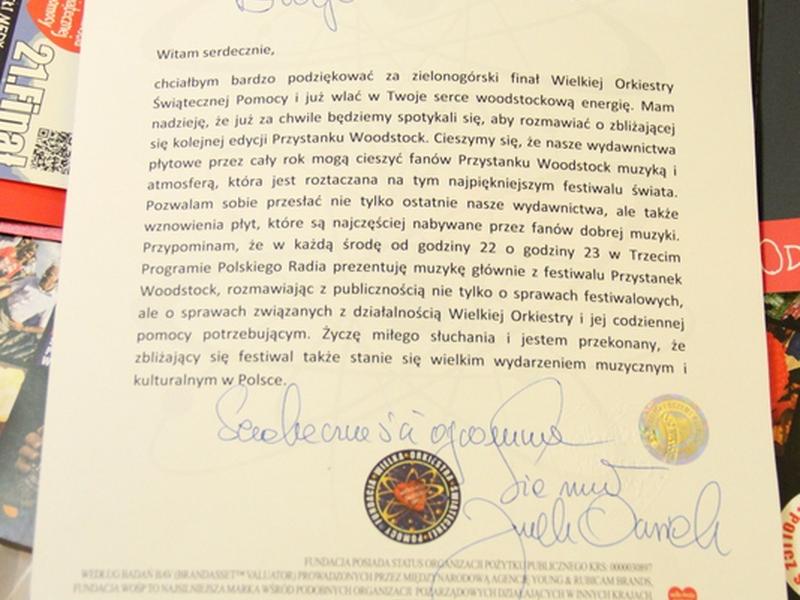 Witam serdecznie,
chciałbym bardzo podziękować za zielonogórski finał Wielkiej Orkiestry
Świątecznej Pomocy i już wlać w Twoje serce woodstockową energię. Mam
nadzieję, że już za chwile będziemy spotykali się, aby rozmawiać o zbliżającej
się kolejnej edycji Przystanku Woodstock. Cieszymy się, że nasze wydawnictwa
płytowe przez cały rok mogą cieszyć fanów Przystanku Woodstock muzyką i
atmosferą, która jest roztaczana na tym najpiękniejszym festiwalu świata.
Pozwalam sobie przesłać nie tylko ostatnie nasze wydawnictwa, ale także
wznowienia płyt, które są najczęściej nabywane przez fanów dobrej muzyki.
Przypominam, że w każdą środę od godziny 22 o godziny 23 w Trzecim
Programie Polskiego Radia prezentuję muzykę głównie z festiwalu Przystanek
Woodstock, rozmawiając z publicznością nie tylko o sprawach festiwalowych,
ale o sprawach związanych z działalnością Wielkiej Orkiestry i jej codziennej
pomocy potrzebującym. Życzę miłego słuchania i jestem przekonany, że
zbliżający się festiwal także stanie się wielkim wydarzeniem muzycznym i
kulturalnym w Polsce.
FUNDACJA WIELKA ORKIESTRA ŚWIĄTECZNEJ POMOCY
FUNDACJA POSIADA STATUS ORGANIZACJI POŻYTKU PUBLICZNEGO KRS: 0000030897
WEDŁUG BADAŃ BAV (BRANDASSET™ VALUATOR) PROWADZONYCH PRZEZ MIĘDZYNARODOWĄ AGENCJĘ YOUNG & RUBICAM BRANDS,
FUNDACJA WOŚP TO NAJSILNIEJSZA MARKA WŚRÓD PODOBNYCH ORGANIZACJI POZARZĄDOWYCH DZIAŁAJĄCYCH W INNYCH KRAJACH
21.Finał